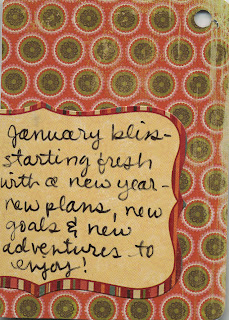 January bliss-
starting fresh
with a new year-
new plans, new
goals & new
adventures - to
enjoy!